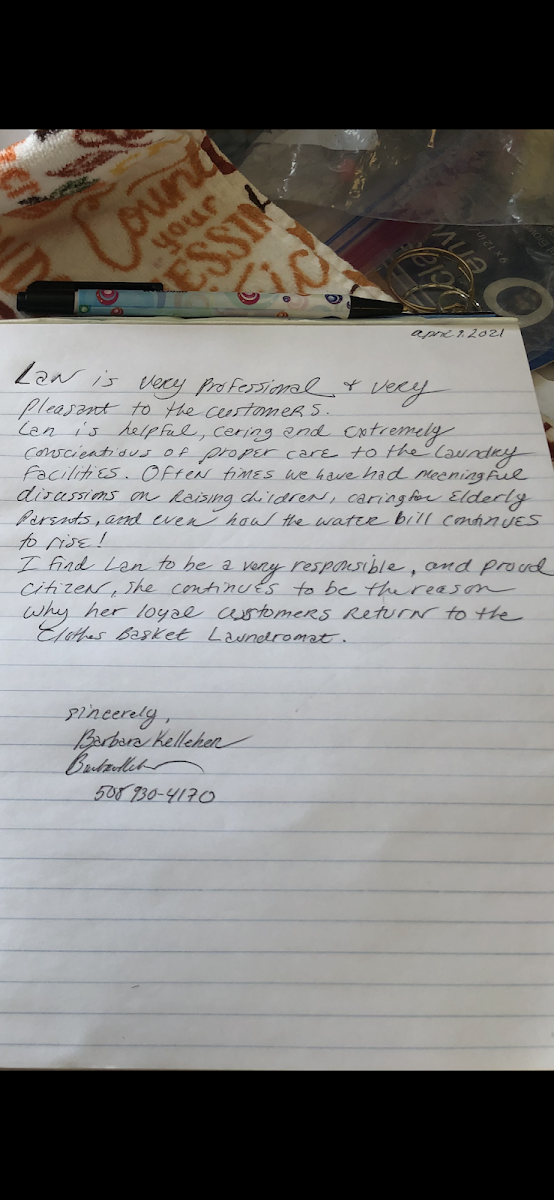 Count
your
ESSIN
april 9. 2021
Lan is very professional & very
pleasant to the customers.
Lan is helpful, caring and extremely
conscientious of proper care to the laundry
facilities. Often times we have had meaningful
discussions on Raising children, caring for Elderly
Parents, and even how the water bill continues
to rise!
I find Lan to be a very responsible, and proud
citizen, she continues to be the reason
why her loyal customers Return to the
Clothes Basket Laundromat.
sincerely,
Barbara Kelleher
508 930-4170